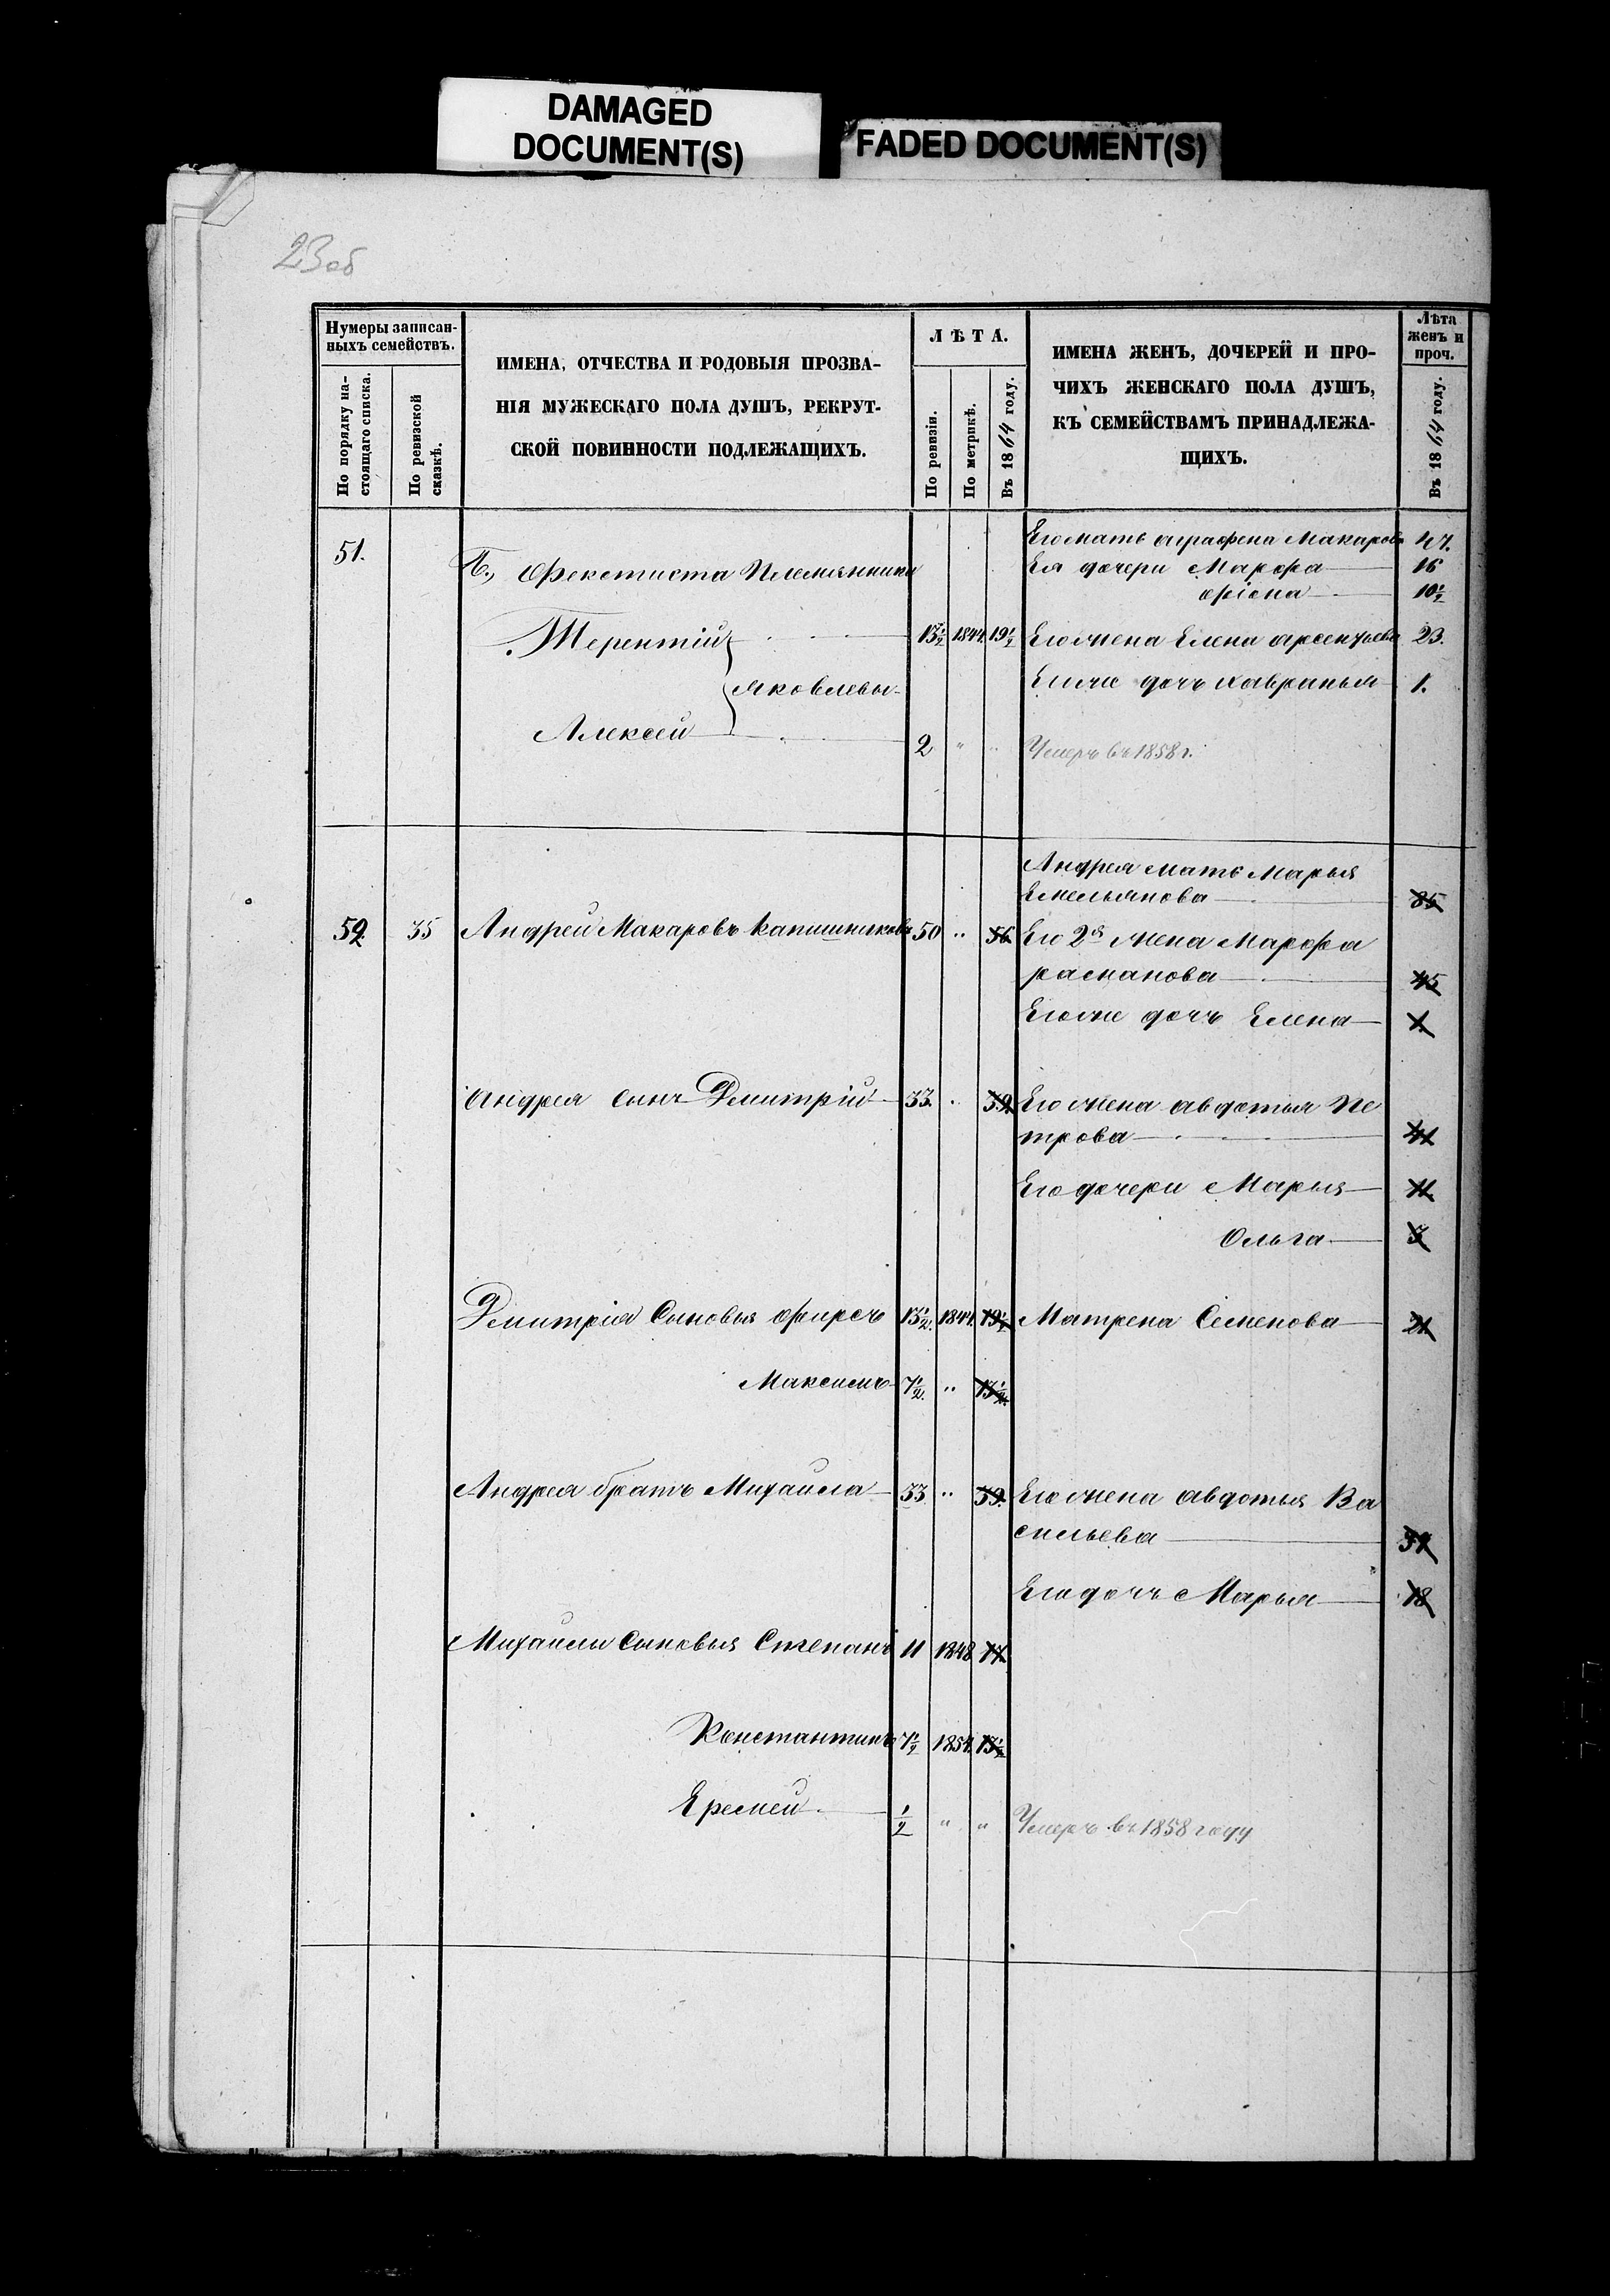 DAMAGED
DOCUMENT(S)
FADED DOCUMENT(S)
23об
Нумеры записан-
ныхъ семействъ.
По порядку на-
стоящаго списка.
По ревизской
сказкѣ.
ИМЕНА, ОТЧЕСТВА И РОДОВЫЯ ПРОЗВА-
НІЯ МУЖЕСКАГО ПОЛА ДУШЪ, РЕКРУТ-
СКОЙ ПОВИННОСТИ ПОДЛЕЖАЩИХЪ.
ЛѢТА.
По ревизіи.
По метрикѣ.
Въ 1864 году.
ИМЕНА ЖЕНЪ, ДОЧЕРЕЙ И ПРО-
ЧИХЪ ЖЕНСКАГО ПОЛА ДУШЪ,
КЪ СЕМЕЙСТВАМЪ ПРИНАДЛЕЖА-
ЩИХЪ.
Лѣта
женъ и
проч.
Въ 1864 году.
Его мать Аграфена Макарова 47.
51. Феклиста Племянники Ея дочери Марфа 16
10½
Терентій 13½ 1844 19½ Его жена Елена Арсентьева 23.
Яковлевы Ихже дочь Хавринья 1.
Алексей 2 " " Умеръ въ 1858 г.
Андрея мать Марья
Емельянова 85
52. 35 Андрей Макаровъ Капишниковъ 50 " 56. Его 2я жена Марфа
45
Ихже дочь Елена 1
Андрея сынъ Дмитрій 33. " 39. Его жена Авдотья Пе
трова 41
Его дочери Марья 11.
Ольга 3
Дмитрія Сыновья Фирсъ 13½. 1844. 19½ Матрена Семенова 21
Максимъ 7½. " 13½.
Андрея братъ Михайла 33 " 39. Его жена Авдотья Ва
сильева
Его дочь Марья 18
Михайлы Сыновья Степанъ 11 1848 17.
Константинъ 7½ 1854. 13½
Еремей ½ " " Умеръ въ 1858 году